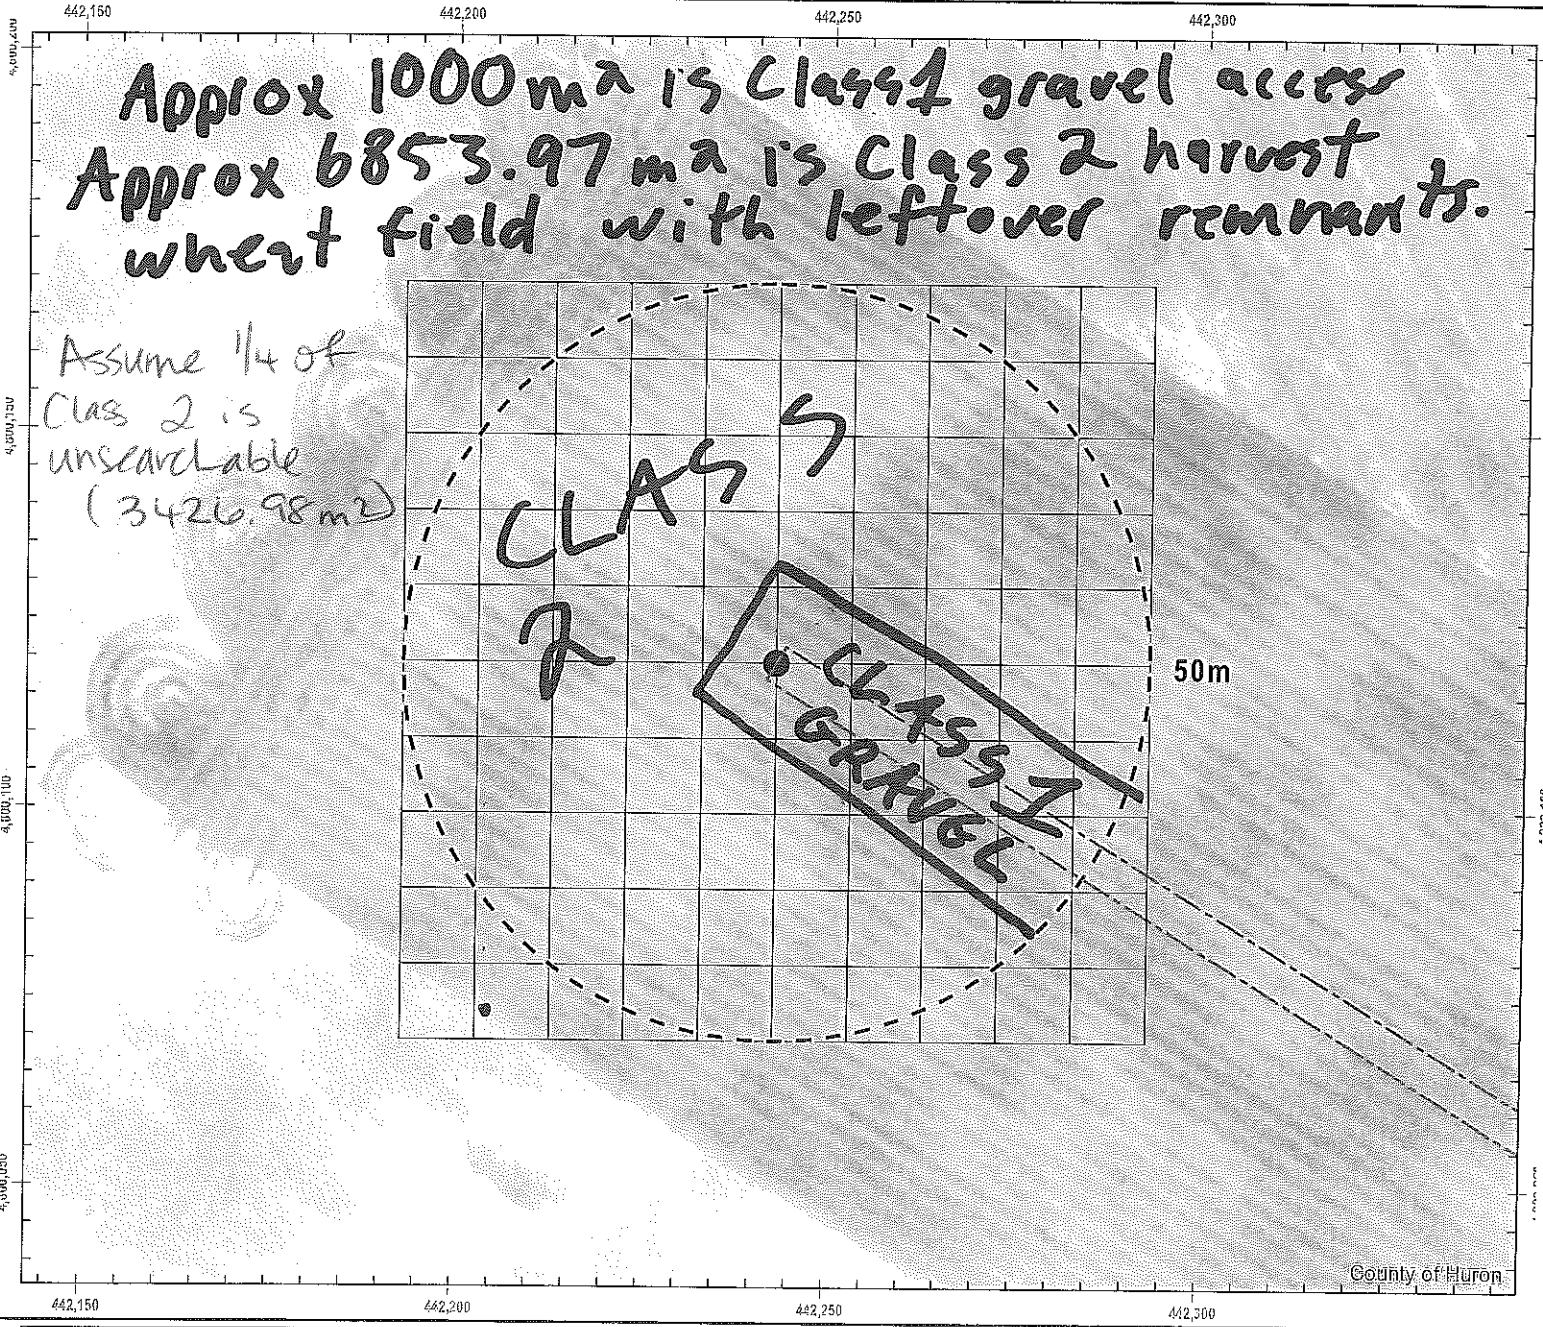 442,150 442,200 442,250 442,300
Approx 1000m2 is Class 1 gravel access
Approx 6853.97 m2 is Class 2 harvest
wheat field with leftover remnants.
Assume 1/4 of
Class 2 is
unsearchable
(3426.98 m2)
CLASS
2
50m
CLASS 1
GRAVEL
County of Huron
442,150 442,200 442,250 442,300